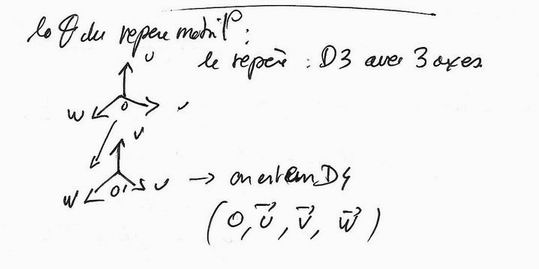 la θ du repère mobile :
le repère : D3 avec 3 axes
U
W O V
U
W O' V → on est en D4
(O, U⃗, V⃗, W⃗)